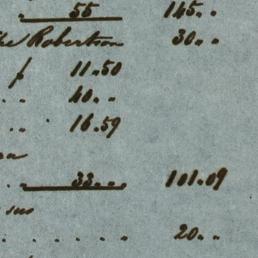 55 145 . .
Robertson 30 . .
f 11.50
. . 40 . .
. . 16.59
. . 33 . . . 101.09
. . . . . . 20 . .